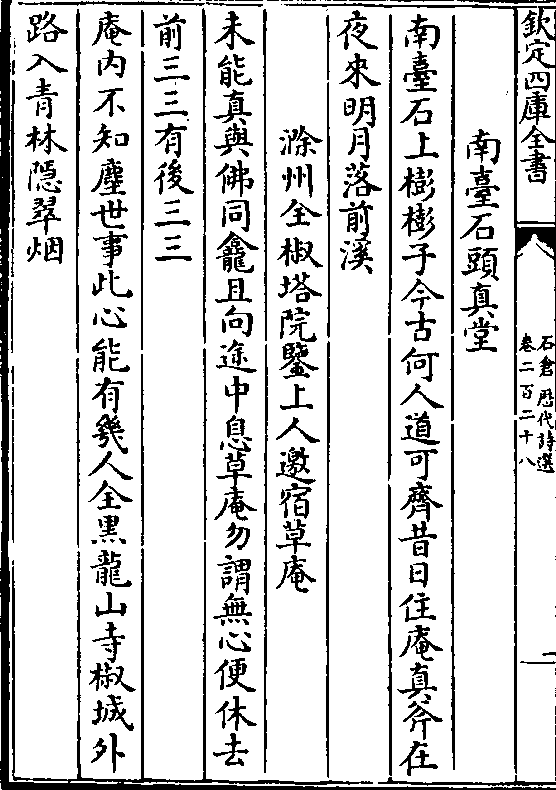 欽定四庫全書
石倉歷代詩選
卷二百二十八
一
南臺石頭真堂
南臺石上樹樹子今古何人道可齊昔日住庵真斧在
夜來明月落前溪
滁州全椒塔院鑒上人邀宿草庵
未能真與佛同龕且向途中息草庵勿謂無心便休去
前三三有後三三
庵内不知塵世事此心能有幾人全黑龍山寺椒城外
路入青林隱翠烟